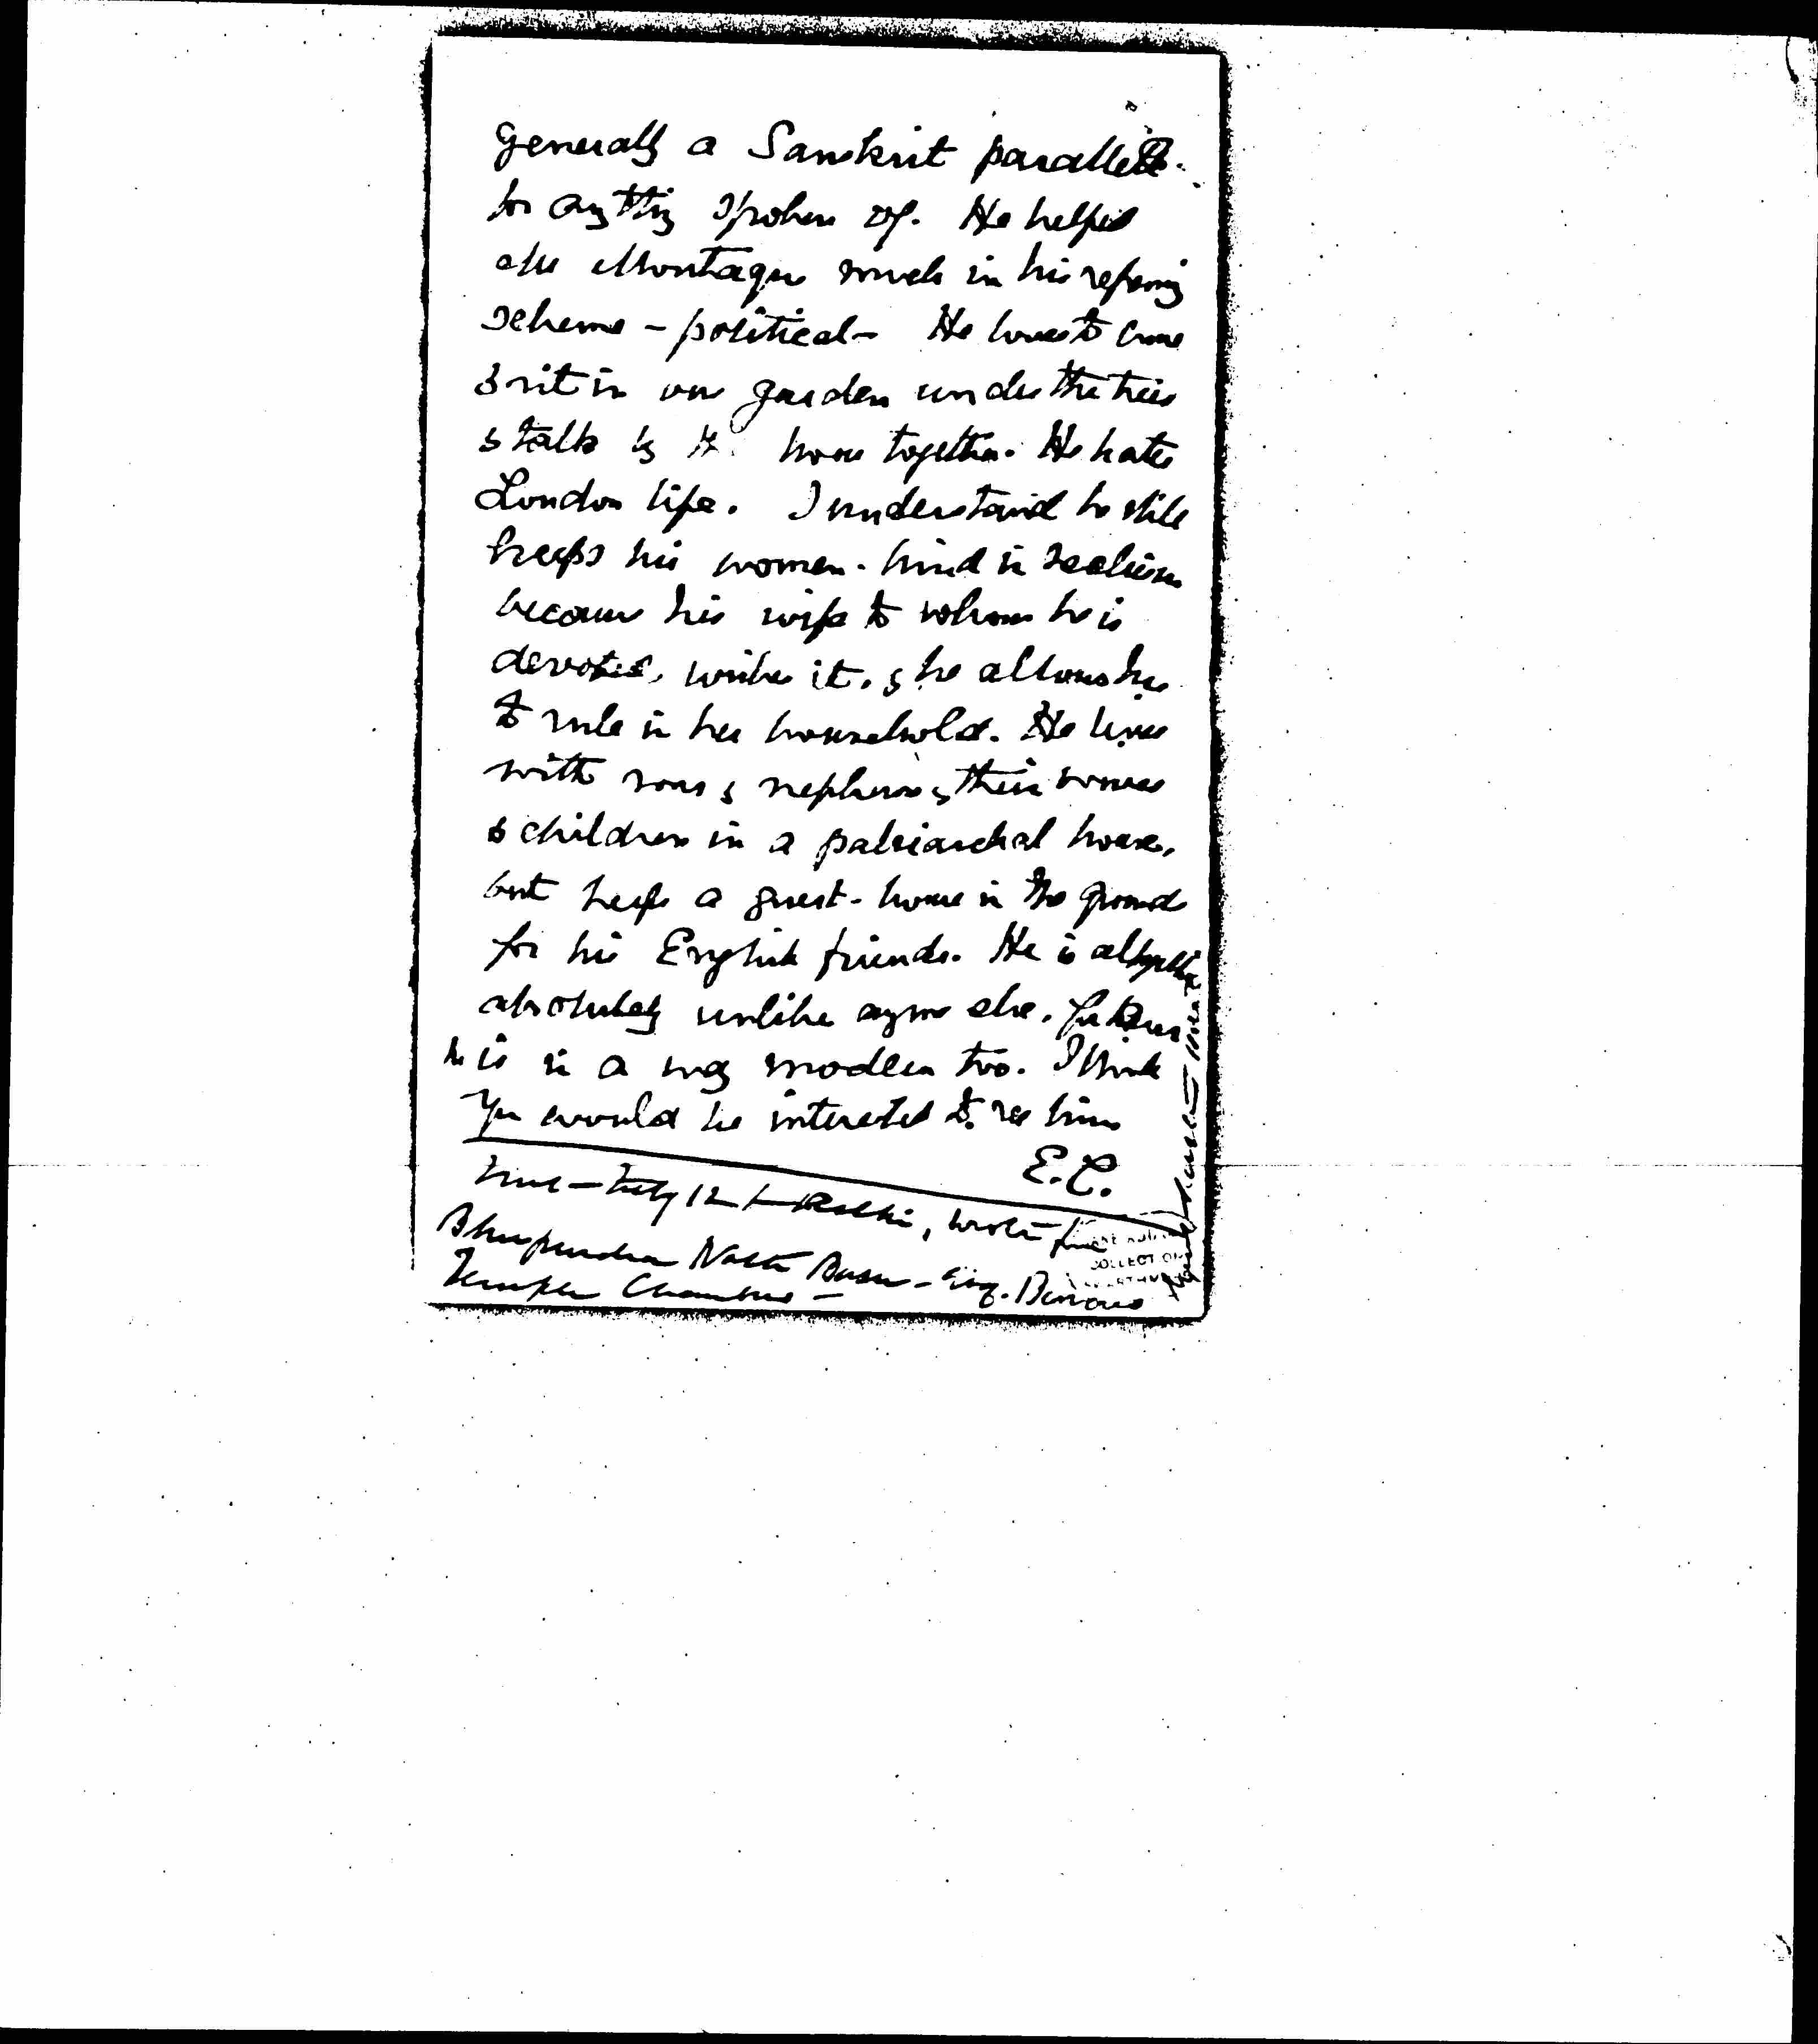 generally a Sanskrit parallel
for anything spoken of. He helped
Mr Montagu much in his reforming
scheme - political - He loves to come
& sit in our garden under the trees
& talk by the hour together. He hates
London life. I understand he still
keeps his women-kind in seclusion
because his wife to whom he is
devoted, wishes it, & he allows her
to rule in her household. He lives
with sons & nephews & their wives
& children in a patriarchal house,
but keeps a guest-house in the grounds
for his English friends. He is altogether
absolutely unlike anyone else.
he is in a way modern too. I think
you would be interested to see him
E.C.
July 12 wrote
Bhupendra Nath Basu - Esq.
Temple Chambers -
COLLECTION